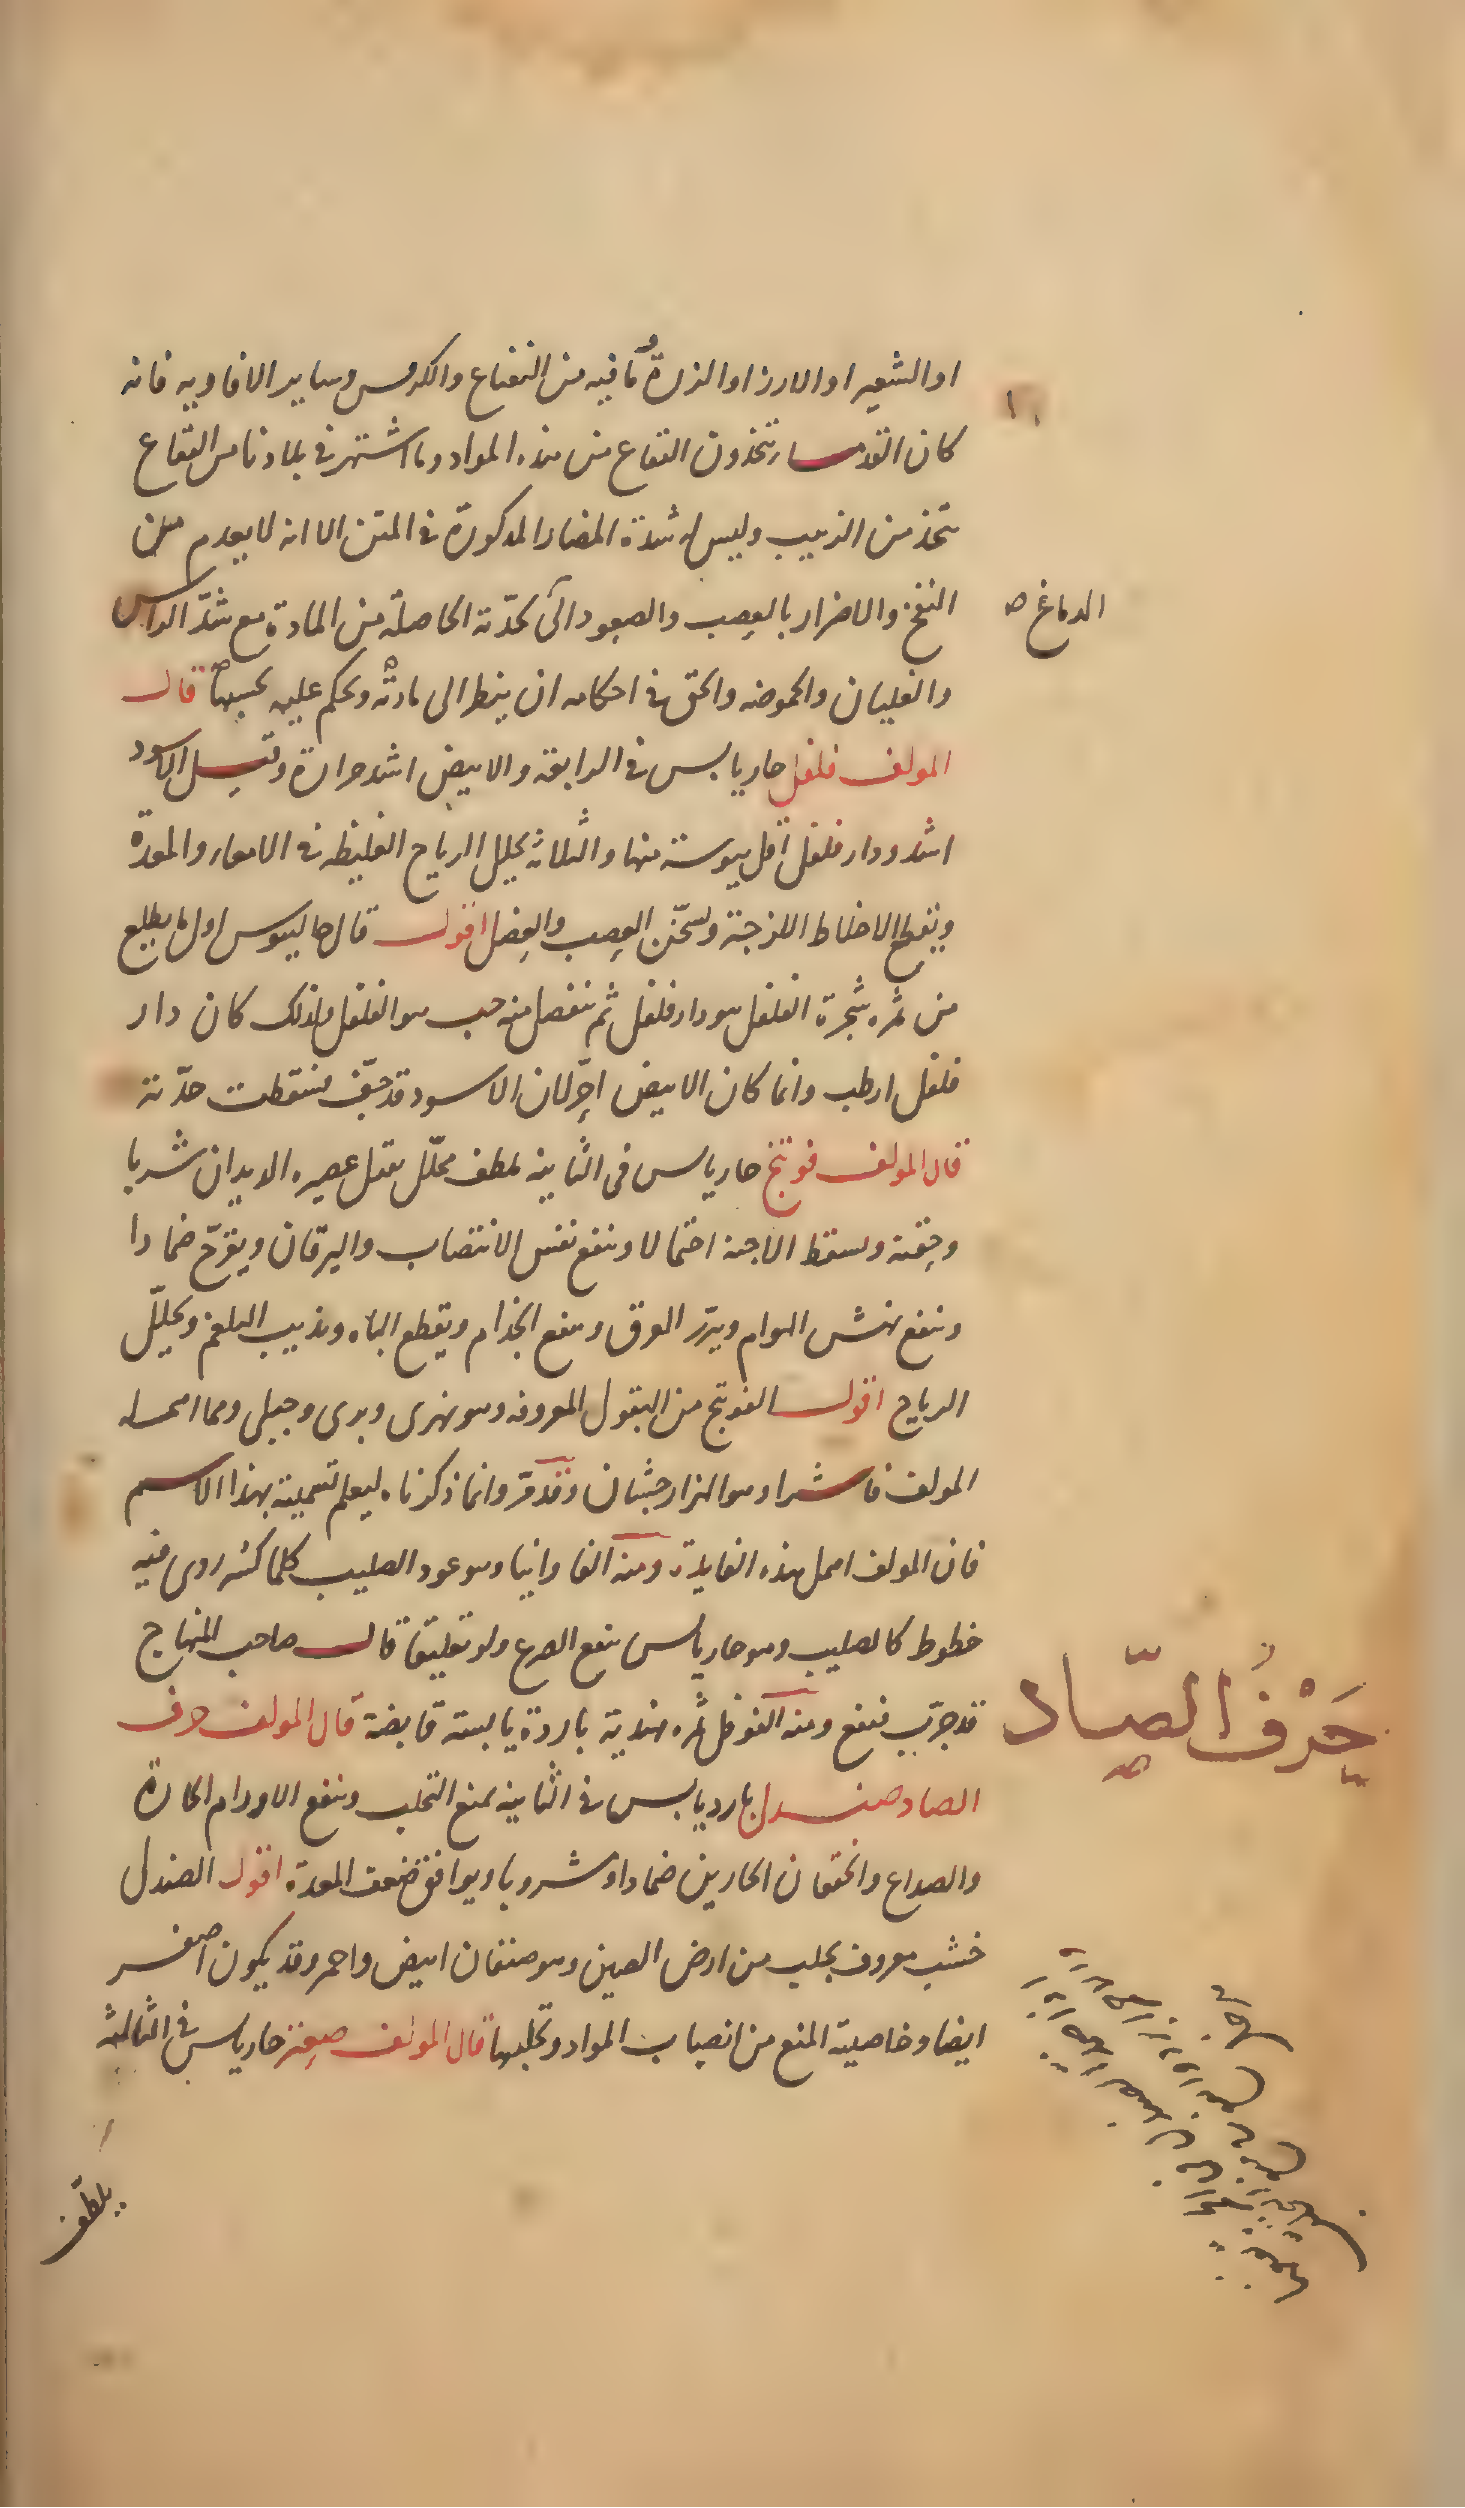 او الشعير او الارز او الذرة وما فيه من النعناع والكرفس وساير الافاويه فانه
كان القدماء يتخذون الفقاع من هذه المواد وما اشتهر في بلادنا من الفقاع
يتخذ من الزبيب وليس له شدة المضار المذكورة في المتن الا انه لا يعدم من
النفخ والاضرار بالعصب والصعود الى لحدته الحاصلة من المادة مع شد الراس
الدماغ ص
والغليان والحموضه والحق في احكامه ان ينظر الى مادته ويحكم عليه بحسبها قال
المولف فلفل حار يابس في الرابعة والابيض اشد حرارة وقيل الاسود
اشد ودار فلفل اقل يبوسة منها والثلاثة يحلل الرياح الغليظه في الامعاء والمعدة
ويقطع الاخلاط اللزجة ويسخن العصب والعضل اقول قال جالينوس اول ما يطلع
من ثمره شجرة الفلفل هو دار فلفل ثم ينفصل منه حب هو الفلفل ولذلك كان دار
فلفل ارطب وانما كان الابيض احر لان الاسود قد جف فسقطت حدته
قال المولف فوتنج حار يابس في الثانيه ملطف محلل يقتل عصيره الديدان شربا
وحقنة ويسقط الاجنه احتمالا وينفع نفس الانتصاب واليرقان ويقرح ضمادا
وينفع نهش الهوام ويدر العرق وينفع الجذام ويقطع الباه ويذيب البلغم ويحلل
الرياح اقول الفوتنج من البقول المعروفه وهو نهرى وبرى وجبلى ومما اهمله
المولف فاشرا وهو الهزارجشان وقد مر وانما ذكرناه ليعلم تسميته بهذا الاسم
فان المولف اهمل هذه الفايدة ومنه الفاوانيا وهو عود الصليب كلما كسر راى فيه
خطوط كالصليب وهو حار يابس ينفع الصرع ولو تعليقا قال صاحب المنهاج
قد جرب فنفع ومنه الفوفل ثمره هندية باردة يابسة قابضة قال المولف حرف
حَرْفُ الصّاد
الصاد صندل بارد يابس في الثانيه يمنع التحلب وينفع الاورام الحارة
والصداع والخفقان الحارين ضمادا وشروبا ويوافق ضعف المعدة اقول الصندل
خشب معروف يجلب من ارض الصين وهو صنفان ابيض واحمر وقد يكون اصفر
ايضا وخاصيته المنع من انصباب المواد وتحلبها قال المولف صعتر حار يابس في الثالثه
يلطف